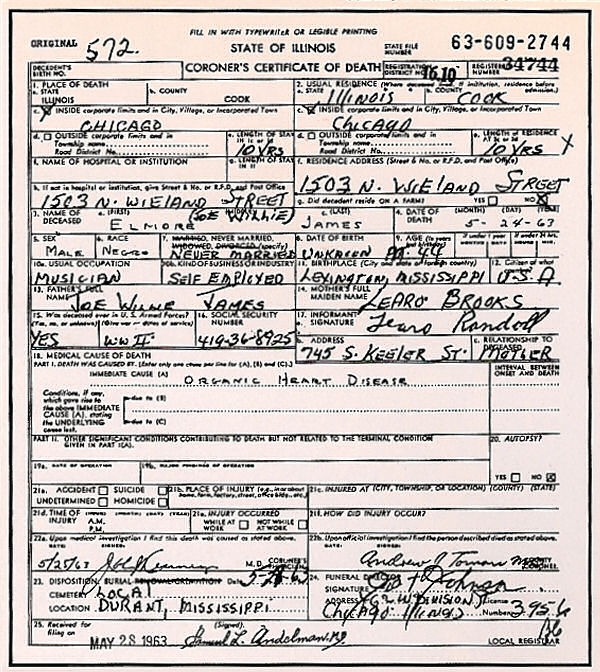 FILL IN WITH TYPEWRITER OR LEGIBLE PRINTING
ORIGINAL 572.
STATE OF ILLINOIS
STATE FILE NUMBER 63-609-2744
DECEDENT'S BIRTH NO.
CORONER'S CERTIFICATE OF DEATH
REGISTRATION DISTRICT NO. 16.10
REGISTERED NUMBER 34744
1. PLACE OF DEATH
a. STATE ILLINOIS
b. COUNTY COOK
2. USUAL RESIDENCE (Where deceased lived. If institution, residence before admission.)
a. STATE ILLINOIS b. COUNTY COOK
c. INSIDE corporate limits and in City, Village, or Incorporated Town
CHICAGO
c. INSIDE corporate limits and in City, Village, or Incorporated Town
CHICAGO
d. OUTSIDE corporate limits and in
Township name
Road District No.
e. LENGTH OF STAY in 1c or 1d
10 YRS
d. OUTSIDE corporate limits and in
Township name
Road District No.
e. LENGTH OF RESIDENCE At 2c or 2d
10 YRS X
f. NAME OF HOSPITAL OR INSTITUTION
g. LENGTH OF STAY in 1f
f. RESIDENCE ADDRESS (Street & No. or R.F.D. and Post Office)
1503 N. WIELAND STREET
h. If not in hospital or institution, give Street & No. or R.F.D. and Post Office
1503 N. WIELAND STREET
g. Did decedent reside ON A FARM? YES NO X
3. NAME OF DECEASED a. (FIRST) (MIDDLE) c. (LAST)
ELMORE (JOE WILLIE) JAMES
4. DATE OF DEATH (MONTH) (DAY) (YEAR)
5-24-63
5. SEX
MALE
6. RACE
NEGRO
7. MARRIED, NEVER MARRIED, WIDOWED, DIVORCED (specify)
NEVER MARRIED
8. DATE OF BIRTH
UNKNOWN
9. AGE
44
10a. USUAL OCCUPATION
MUSICIAN
10b. KIND OF BUSINESS OR INDUSTRY
SELF EMPLOYED
11. BIRTHPLACE (City and state or foreign country)
LEXINGTON, MISSISSIPPI
12. Citizen of what country
U.S.A
13. FATHER'S FULL NAME
JOE WILLIE JAMES
14. MOTHER'S FULL MAIDEN NAME
LEARO BROOKS
15. Was deceased ever in U. S. Armed Forces?
(Yes, no, or unknown) (Give war — dates of service)
YES WW II
16. SOCIAL SECURITY NUMBER
419-36-8925
17. INFORMANT
a. SIGNATURE
b. ADDRESS 745 S. KEELER ST.
c. RELATIONSHIP TO DECEASED MOTHER
18. MEDICAL CAUSE OF DEATH
PART I. DEATH WAS CAUSED BY. (Enter only one cause per line for (A), (B) and (C).)
INTERVAL BETWEEN ONSET AND DEATH
IMMEDIATE CAUSE (A) ORGANIC HEART DISEASE
Conditions, if any, which gave rise to the above IMMEDIATE CAUSE (A), stating the UNDERLYING cause last.
due to (B)
due to (C)
PART II. OTHER SIGNIFICANT CONDITIONS CONTRIBUTING TO DEATH BUT NOT RELATED TO THE TERMINAL CONDITION GIVEN IN PART I(A).
20. AUTOPSY?
YES NO X
19a. DATE OF OPERATION
19b. MAJOR FINDINGS OF OPERATION
21a. ACCIDENT SUICIDE
UNDETERMINED HOMICIDE
21b. PLACE OF INJURY (e.g., in or about home, farm, factory, street, office bldg., etc.)
21c. INJURED AT (CITY, TOWNSHIP, OR LOCATION) (COUNTY) (STATE)
21d. TIME OF INJURY (MONTH) (DAY) (YEAR)
A.M.
P.M.
21e. INJURY OCCURRED
WHILE AT WORK NOT WHILE AT WORK
21f. HOW DID INJURY OCCUR?
22a. Upon medical investigation I find this death was caused as stated above.
DATE: SIGNED:
5/25/63
M.D. CORONER'S PHYSICIAN
22b. Upon official investigation I find the person described died as stated above.
DATE: SIGNED:
COUNTY CORONER.
23. DISPOSITION: BURIAL-REMOVAL-CREMATION Date 5-28-63
CEMETERY LOCAL
LOCATION DURANT, MISSISSIPPI
24. FUNERAL DIRECTOR
SIGNATURE
ADDRESS W DIVISION
CHICAGO ILLINOIS
License Number 3956
25. Received for filing on MAY 28 1963
(Signed). Samuel L. Andelman, M.D.
LOCAL REGISTRAR